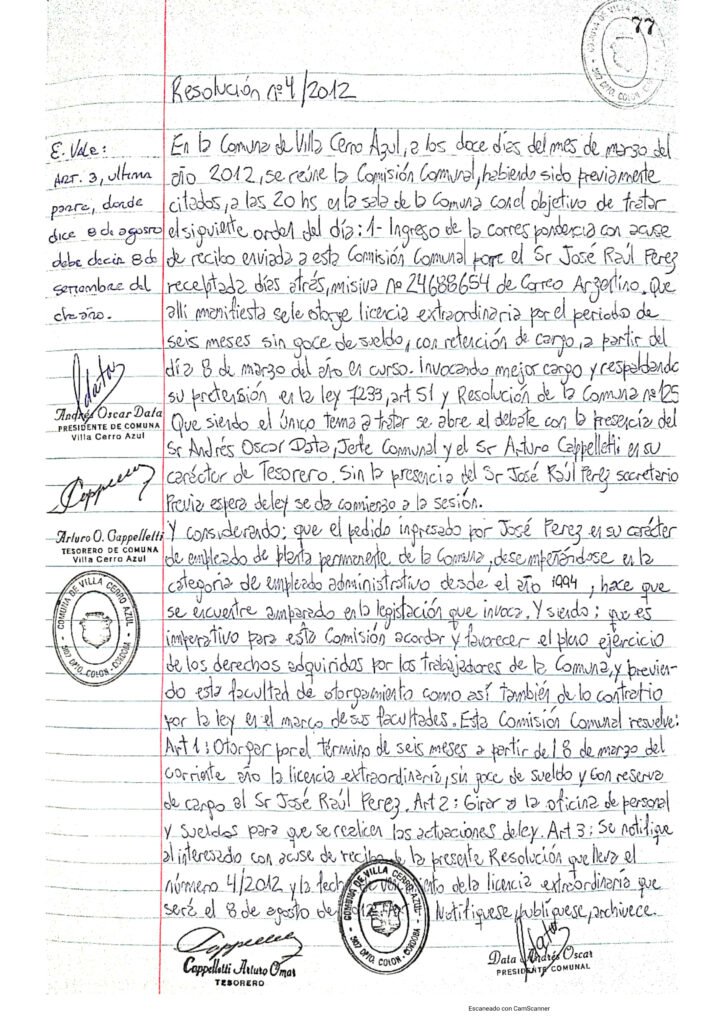 77
COMUNA DE VILLA CERRO AZUL
DPTO. COLON
Resolución nº4/2012
E. Vale:
Art. 3, ultima
parte, donde
dice 8 de agosto
debe decir 8 de
septiembre del
cte año.
En la Comuna de Villa Cerro Azul, a los doce días del mes de marzo del
año 2012, se reúne la Comisión Comunal, habiendo sido previamente
citados, a las 20 hs en la sala de la Comuna con el objetivo de tratar
el siguiente orden del día: 1- Ingreso de la correspondencia con acuse
de recibo enviada a esta Comisión Comunal por el Sr José Raúl Perez
receptada días atrás, misiva nº 24688654 de Correo Argentino. Que
allí manifiesta se le otorge licencia extraordinaria por el periodo de
seis meses sin goce de sueldo, con retención de cargo, a partir del
día 8 de marzo del año en curso. Invocando mejor cargo y respaldando
su pretensión en la ley 7233, art 51 y Resolución de la Comuna nº125
Que siendo el único tema a tratar se abre el debate con la presencia del
Sr Andrés Oscar Data, Jefe Comunal y el Sr Arturo Cappelletti en su
carácter de Tesorero. Sin la presencia del Sr José Raúl Perez secretario
Previa espera de ley se da comienzo a la sesión.
Y considerando: que el pedido ingresado por José Perez en su carácter
de empleado de planta permanente de la Comuna, desempeñándose en la
categoría de empleado administrativo desde el año 1994, hace que
se encuentre amparado en la legislación que invoca. Y siendo: que es
imperativo para esta Comisión acordar y favorecer el pleno ejercicio
de los derechos adquiridos por los trabajadores de la Comuna, y previen-
do esta facultad de otorgamiento como así también de lo contrario
por la ley en el marco de sus facultades. Esta Comisión Comunal resuelve:
Art 1: Otorgar por el término de seis meses a partir del 8 de marzo del
corriente año la licencia extraordinaria, sin goce de sueldo y con reserva
de cargo al Sr José Raúl Perez. Art 2: Girar a la oficina de personal
y sueldos para que se realicen las actuaciones de ley. Art 3: Se notifique
al interesado con acuse de recibo de la presente Resolución que lleva el
número 4/2012 y la fecha de vencimiento de la licencia extraordinaria que
será el 8 de agosto de 2012. Notifiquese, publíquese, archivece.
Data
Andrés Oscar Data
PRESIDENTE DE COMUNA
Villa Cerro Azul
Cappelletti
Arturo O. Cappelletti
TESORERO DE COMUNA
Villa Cerro Azul
COMUNA DE VILLA CERRO AZUL
5107 DPTO. COLON - CORDOBA
Cappelletti
Cappelletti Arturo Omar
TESORERO
COMUNA DE VILLA CERRO AZUL
5107 DPTO. COLON - CORDOBA
Data
Data Andrés Oscar
PRESIDENTE COMUNAL
Escaneado con CamScanner